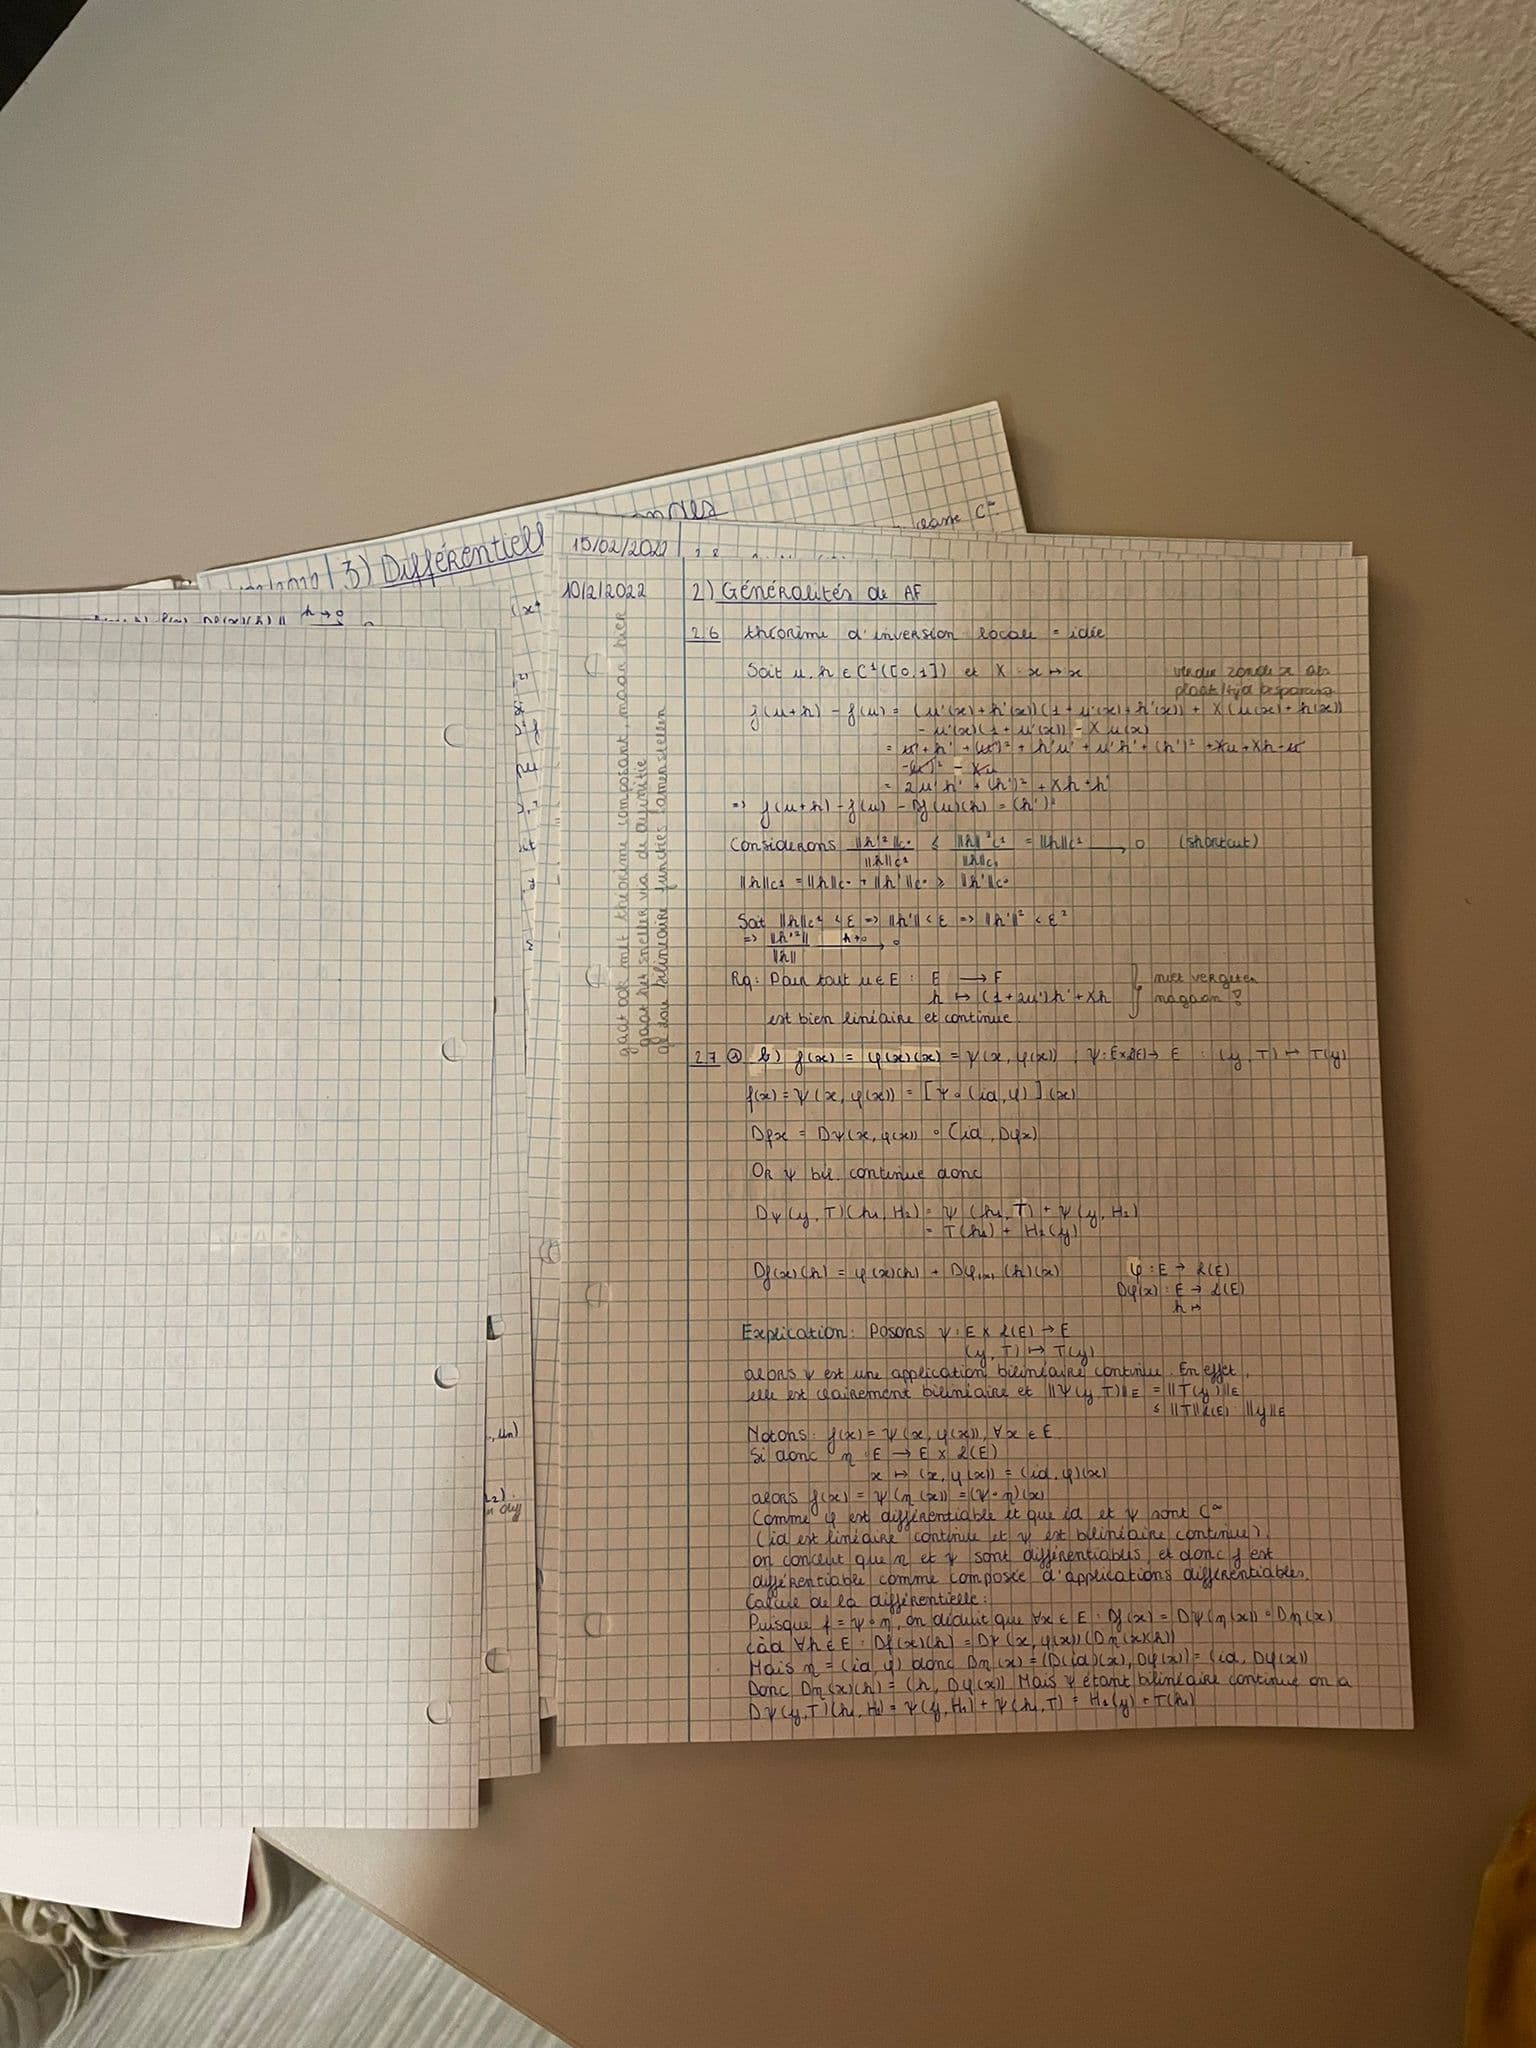 3) Différentiell
classe C∞
15/02/2022
10/2/2022
2) Généralités de AF
2.6 théorème d'inversion locale = idée
Soit u, h ∈ C¹([0,1]) et X : x ↦ x
verder zonder x als
plaats/tijd besparing
f(u+h) - f(u) = (u'(x)+h'(x))(1+u'(x)+h'(x)) + X(u(x)+h(x))
- u'(x)(1+u'(x)) - X u(x)
= u' + h' + (u')² + h'u' + u'h' + (h')² + Xu + Xh - u'
- (u')² - Xu
= 2u'h' + (h')² + Xh + h'
=> f(u+h) - f(u) - Df(u)(h) = (h')²
Considérons ||h'²||c⁰ / ||h||c¹ ≤ ||h||²c¹ / ||h||c¹ = ||h||c¹ → 0 (shortcut)
||h||c¹ = ||h||c⁰ + ||h'||c⁰ ≥ ||h'||c⁰
Soit ||h||c¹ < ε => ||h'|| < ε => ||h'||² < ε²
=> ||h'²|| / ||h|| h→0 → 0
Rq: Pour tout u ∈ E : E → F
h ↦ (1+2u')h' + Xh
est bien linéaire et continue
niet vergeten
nagaan !
gaat ook met théorème composant, maar hier
gaat het sneller via de definitie
of door bilinéaire functies samenstellen
2.7 b) f(x) = φ(x)(x) = ψ(x, φ(x)) , ψ: E×L(E) → E : (y, T) ↦ T(y)
f(x) = ψ(x, φ(x)) = [ψ∘(id, φ)](x)
Dfx = Dψ(x, φ(x)) ∘ (id, Dφx)
OR ψ bil. continue donc
Dψ(y, T)(h₁, H₂) = ψ(h₁, T) + ψ(y, H₂)
= T(h₁) + H₂(y)
Df(x)(h) = φ(x)(h) + Dφ(x)(h)(x)
φ : E → L(E)
Dφ(x) : E → L(E)
h ↦
Explication: Posons ψ : E × L(E) → E
(y, T) ↦ T(y)
alors ψ est une application bilinéaire continue. En effet,
elle est clairement bilinéaire et ||ψ(y, T)||E = ||T(y)||E
≤ ||T||L(E) · ||y||E
Notons: f(x) = ψ(x, φ(x)), ∀x ∈ E
Si donc η : E → E × L(E)
x ↦ (x, φ(x)) = (id, φ)(x)
alors f(x) = ψ(η(x)) = (ψ∘η)(x)
Comme φ est différentiable et que id et ψ sont C∞
(id est linéaire continue et ψ est bilinéaire continue),
on conclut que η et ψ sont différentiables et donc f est
différentiable comme composée d'applications différentiables.
Calcul de la différentielle:
Puisque f = ψ∘η, on déduit que ∀x ∈ E : Df(x) = Dψ(η(x)) ∘ Dη(x)
càd ∀h ∈ E : Df(x)(h) = Dψ(x, φ(x))(Dη(x)(h))
Mais η = (id, φ) donc Dη(x) = (D(id)(x), Dφ(x)) = (id, Dφ(x))
Donc Dη(x)(h) = (h, Dφ(x)) Mais ψ étant bilinéaire continue on a
Dψ(y, T)(h₁, H₂) = ψ(y, H₂) + ψ(h₁, T) = H₂(y) + T(h₁)